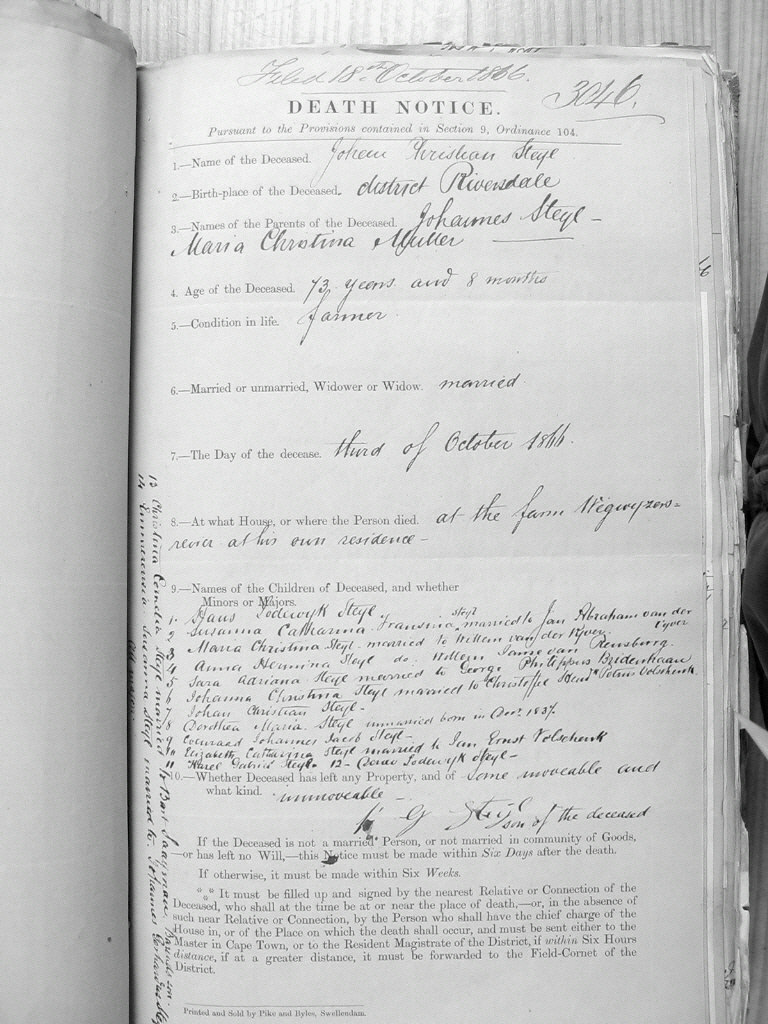 Filed 18th October 1866.
3046.
DEATH NOTICE.
Pursuant to the Provisions contained in Section 9, Ordinance 104.
1.—Name of the Deceased. Johan Christian Steyl
2.—Birth-place of the Deceased. district Riversdale
3.—Names of the Parents of the Deceased. Johannes Steyl -
Maria Christina Muller
4. Age of the Deceased. 73 years and 8 months
5.—Condition in life. farmer.
6.—Married or unmarried, Widower or Widow. married
7.—The Day of the decease. third of October 1866.
8.—At what House, or where the Person died. at the farm Wegwyzers=
revier at his own residence -
9.—Names of the Children of Deceased, and whether
Minors or Majors.
1. Lodewyk Steyl
2 Susanna Catharina Fransina Steyl married to Jan Abraham van der Vyver
3 Maria Christina Steyl married to Willem van der Vyver
4 Anna Hermina Steyl do. Willem van Rensburg.
5 Sara Adriana Steyl married to George Philippus
6 Johanna Christina Steyl married to Christoffel Petrus Volschenk
7 Johan Christian Steyl -
8 Dorothea Maria Steyl unmarried born in 1837.
9 Evenraad Johannes Jacob Steyl -
10 Elizabeth Catharina Steyl married to Jan Ernst Volschenk
11 Karel Steyl 12 - Lodewyk Steyl -
10.—Whether Deceased has left any Property, and of Some moveable and
what kind. immoveable -
G Steyl
son of the deceased
If the Deceased is not a married Person, or not married in community of Goods,
—or has left no Will,—this Notice must be made within Six Days after the death.
If otherwise, it must be made within Six Weeks.
*** It must be filled up and signed by the nearest Relative or Connection of the
Deceased, who shall at the time be at or near the place of death,—or, in the absence of
such near Relative or Connection, by the Person who shall have the chief charge of the
House in, or of the Place on which the death shall occur, and must be sent either to the
Master in Cape Town, or to the Resident Magistrate of the District, if within Six Hours
distance, if at a greater distance, it must be forwarded to the Field-Cornet of the
District.
Printed and Sold by Pike and Byles, Swellendam.
13 Christina Cornelia Steyl married to Bart
14 Johanna Steyl married to Johannes Steyl